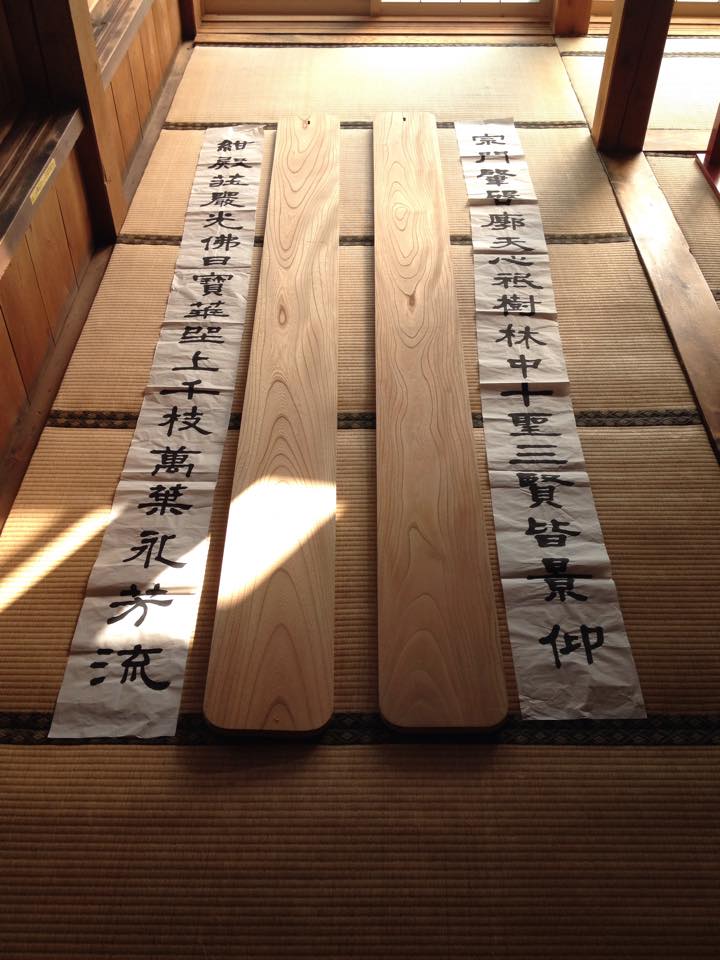 宗門肇啓廓天心祇樹林中十聖三賢皆景仰
紺殿莊嚴光佛日寶華㘴上千枝萬葉永芳流